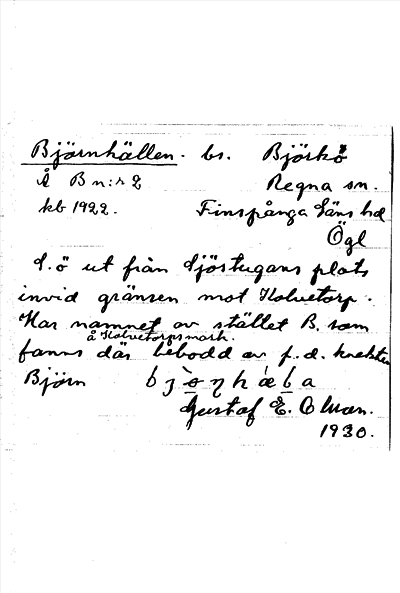 Björnhällen. bs. Björkö
Å B n:r 2 Regna sn.
kb 1922. Finspånga läns hd
Ögl
S.ö ut från Sjöstugans plats
invid gränsen mot Kolvetorp.
Har namnet av stället B. som
å Kolvetorps mark.
fanns där bebodd av f.d. knekten
Björn
Gustaf E. Olman.
1930.